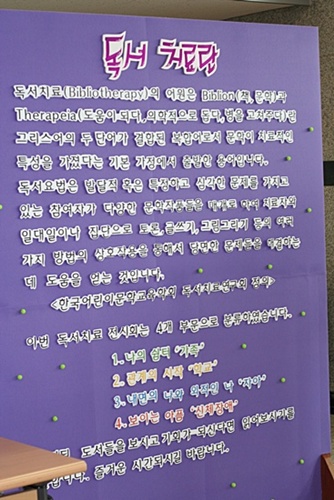 독서 치료란
독서치료(Bibliotherapy)의 어원은 Biblion(책, 문학)과
Therapeia(도움이 되다, 의학적으로 돕다, 병을 고쳐주다)란
그리스어의 두 단어가 결합된 복합어로서 문학이 치료적인
특성을 가졌다는 기본 가정에서 출발한 용어입니다.
독서요법은 발달적 혹은 특정하고 심각한 문제를 가지고
있는 참여자가 다양한 문학작품들을 매개로 하여 치료자와
일대일이나 집단으로 토론, 글쓰기, 그림그리기 등의 여러
가지 방법의 상호작용을 통해서 당면한 문제들을 해결하는
데 도움을 얻는 것입니다.
<한국어린이문학교육학회 독서치료연구회 정의>
이번 독서치료 전시회는 4개 부문으로 분류하였습니다.
1. 나의 쉼터 "가족"
2. 관계의 시작 "학교"
3. 내면의 나와 외적인 나 "자아"
4. 보이는 아픔 "신체장애"
도서들을 보시고 기회가 되신다면 읽어보시기를
즐거운 시간되시길 바랍니다.